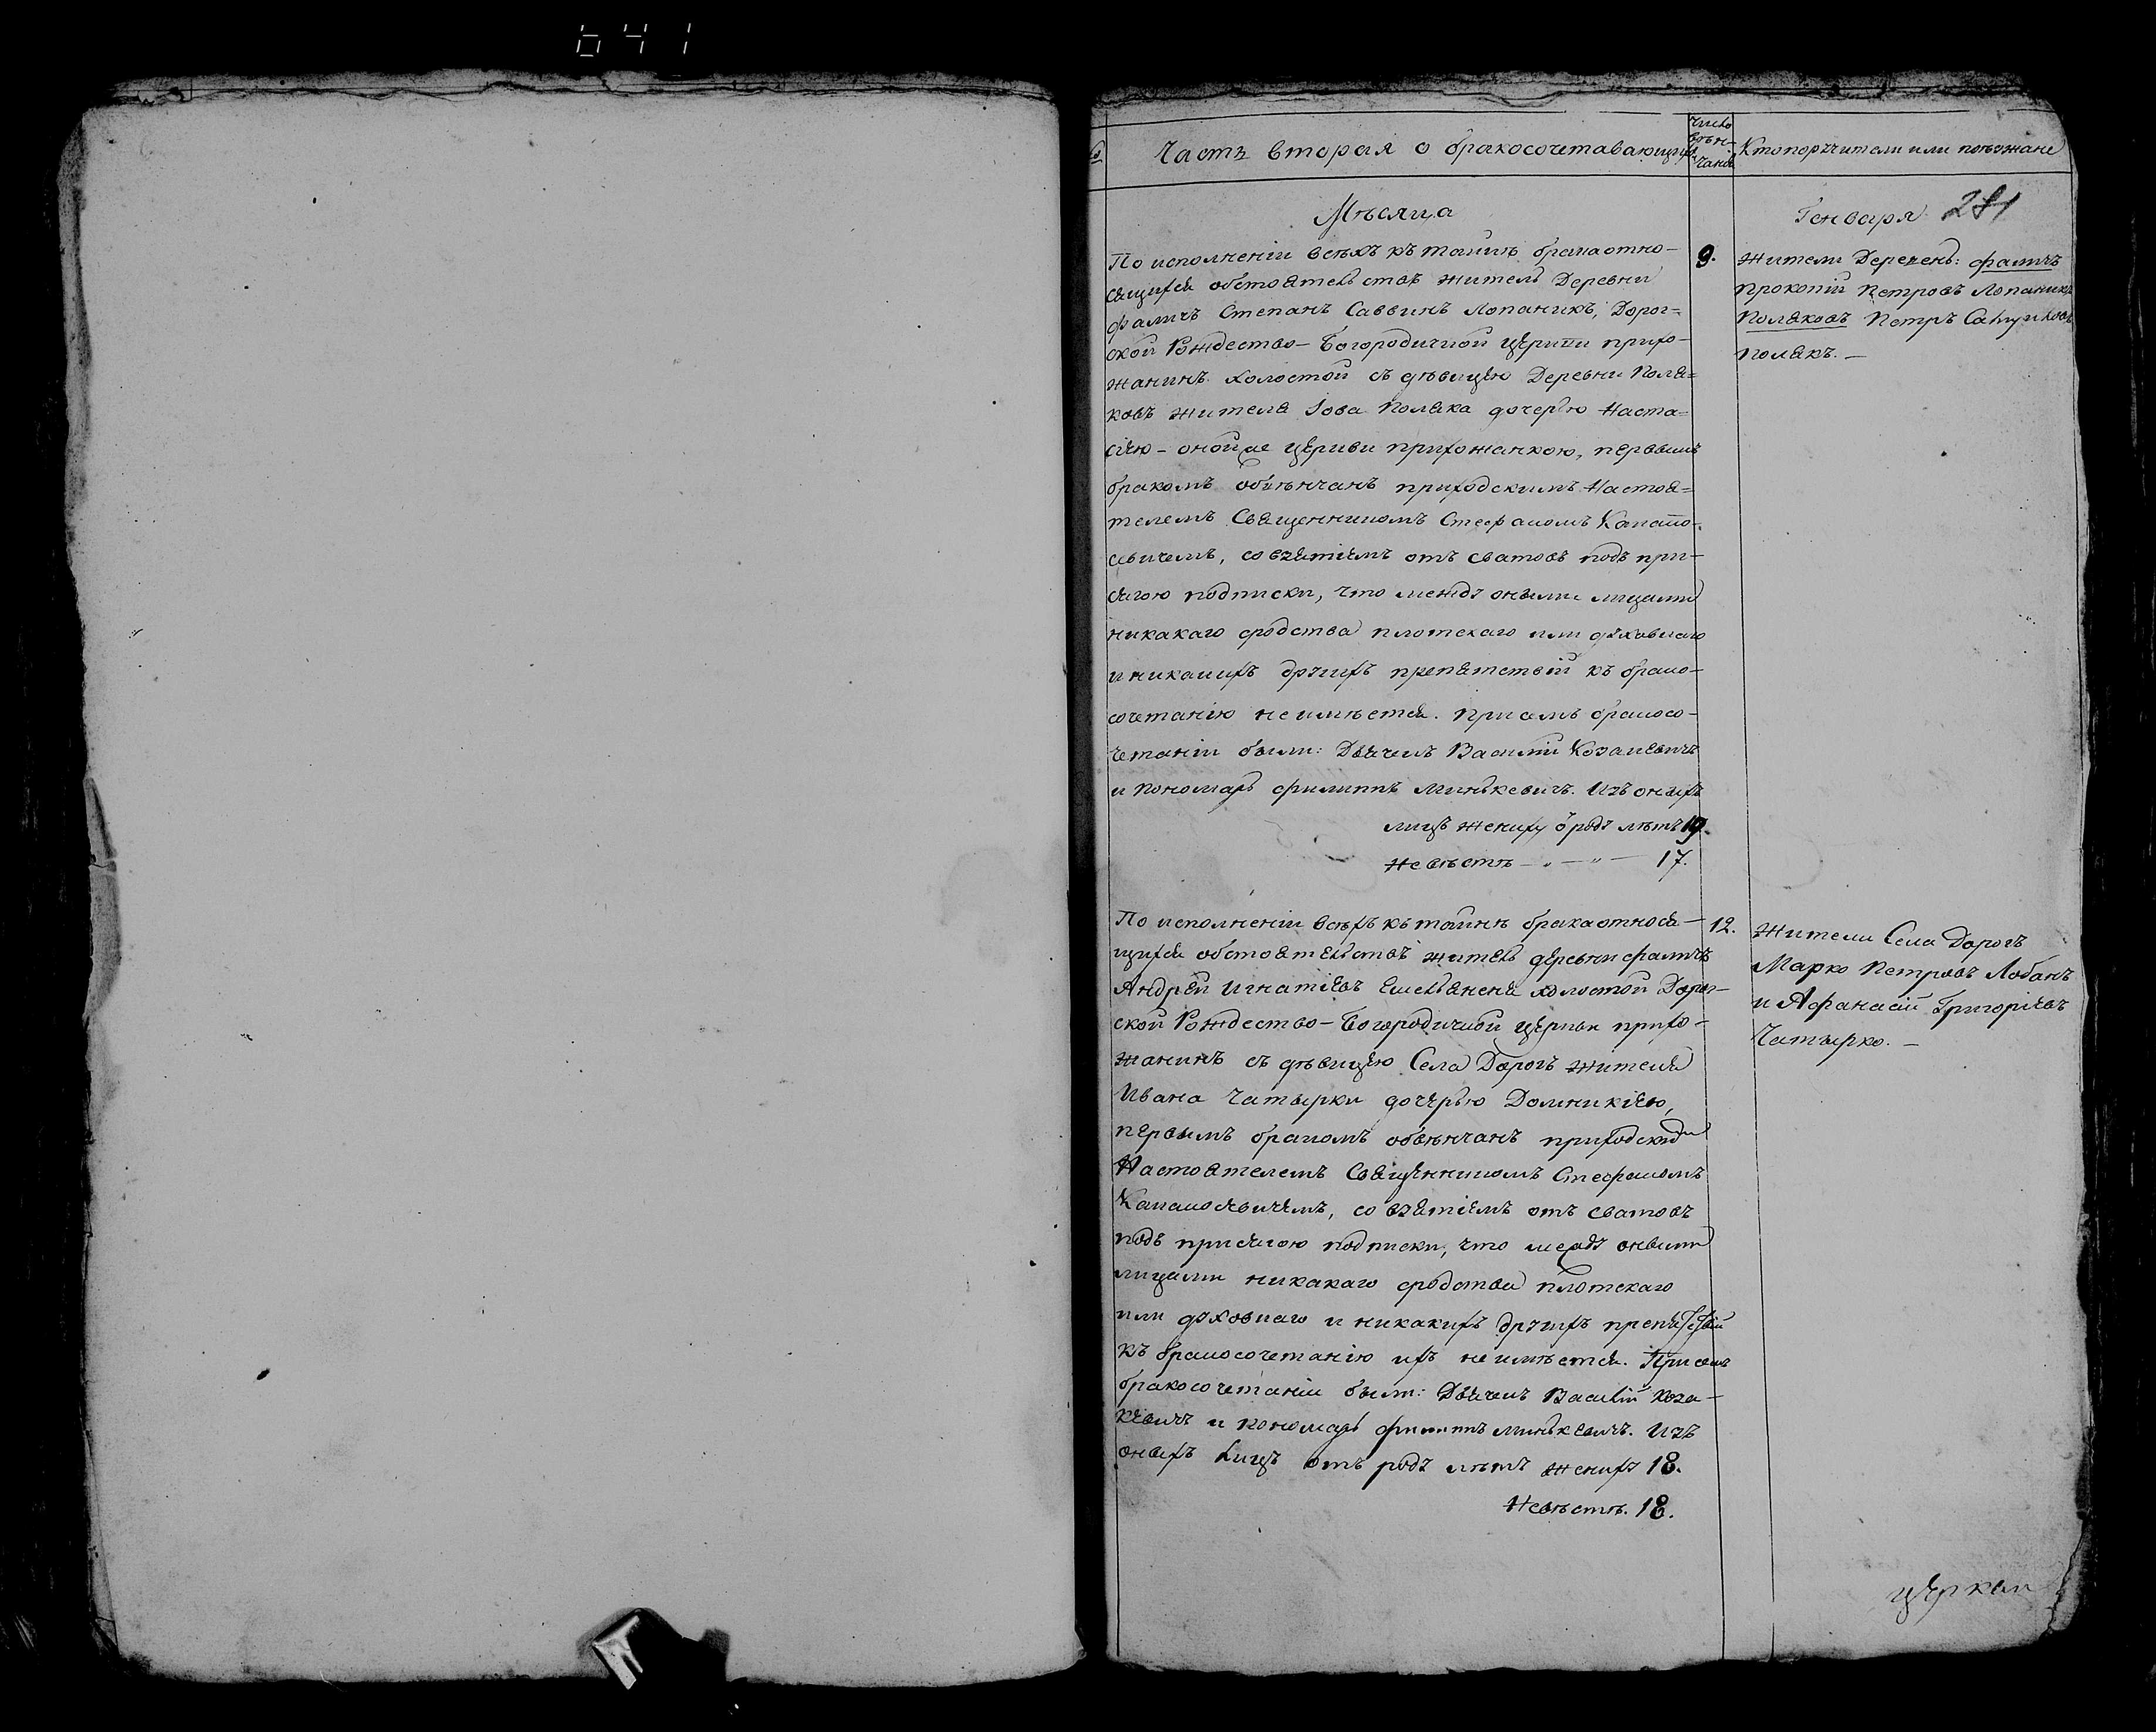 641
Часть вторая о бракосочетавающихъ
число вѣнчанія
Кто поручители или поезжане
Мѣсяца
Генваря 281
По исполненіи всѣхъ къ тайнѣ брака отно-
сящихся обстоятельствъ житель Деревни
Фаличъ Степанъ Саввинъ Лопаникъ, Дорог=
ской Рождество-Богородичной церкви прихо-
жанинъ холостой съ дѣвицею Деревни Поля=
ковъ жителя Іова Поляка дочерью Наста=
сіею - онойже церкви прихожанкою, первымъ
бракомъ обвѣнчанъ приходскимъ Настоя=
телемъ Священникомъ Стефаномъ
со взятіемъ отъ сватовъ подъ при-
сягою подписки, что между оными лицами
никакаго сродства плотскаго или духовнаго
и никакихъ другихъ препятствій къ брако-
сочетанію не имѣется. При семъ бракосо-
четаніи были: Дьячекъ Василій Козакевичъ
и Пономарь Филиппъ Минькевичъ. Изъ оныхъ
лицъ жениху ѿ роду лѣтъ 19.
Невѣстѣ - " - " - 17.
9.
Жители Деревень: Фаличъ
Прокопій Петровъ Лопаникъ
Поляковъ Петръ
Полякъ. -
По исполненіи всѣхъ къ тайнѣ брака относя-
щихся обстоятельствъ житель деревни Фаличъ
Андрей Игнатіевъ Емельянення холостой Дорог-
ской Рождество-Богородичной церкви прихо-
жанинъ съ дѣвицею Села Дорогъ жителя
Ивана Чатырки дочерью Домникіею,
первымъ бракомъ обвѣнчанъ приходскимъ
Настоятелемъ Священникомъ Стефаномъ
со взятіемъ отъ сватовъ
подъ присягою подписки, что между оными
лицами никакаго сродства плотскаго
или духовнаго и никакихъ другихъ препятствій
къ бракосочетанію ихъ не имѣется. При семъ
бракосочетаніи были: Дьячекъ Василій Коза-
кевичъ и Пономарь Филиппъ Минькевичъ. Изъ
оныхъ лицъ отъ роду лѣтъ жениху 18.
Невѣстѣ. 18.
12.
Жители Села Дорогъ
Марко Петровъ Лобанъ
и Афанасій Григоріевъ
Чатырко. -
церкви